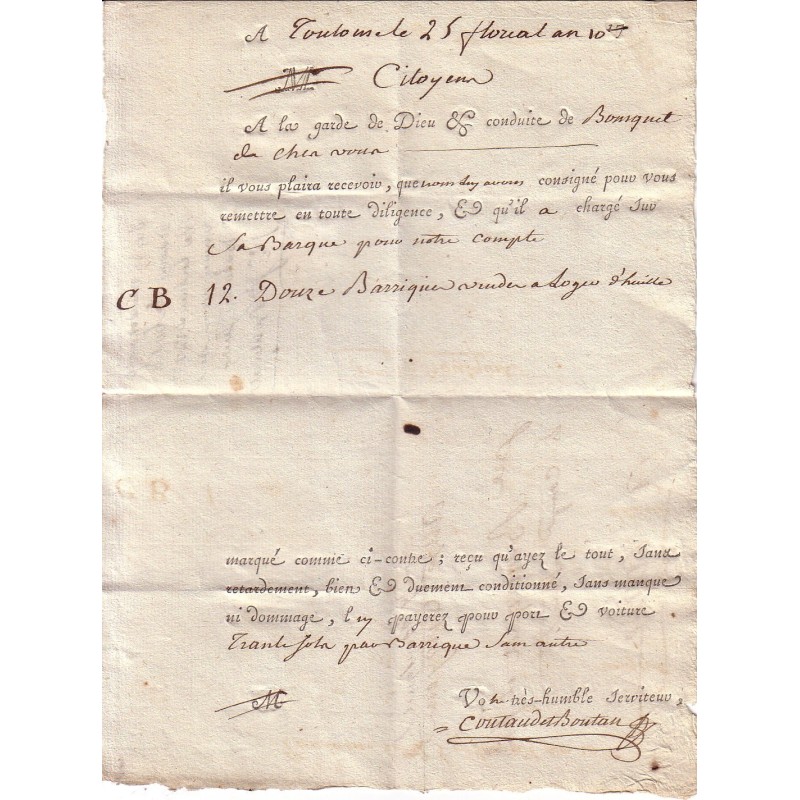 A Toulouse le 25 floreal an 10
M
Citoyens
A la garde de Dieu & conduite de Bousquet
de chez vous
il vous plaira recevoir, que nous luy avons consigné pour vous
remettre en toute diligence, & qu'il a chargé sur
sa Barque pour notre compte
C B 12. Douze Barriques vuides a loger d'huille
marqué comme ci-contre; reçu qu'ayez le tout, sans
retardement, bien & duement conditionné, sans manque
ni dommage, l uy payerez pour port & voiture
Trante sols par Barrique sans autre
M
Votre très-humble serviteur,